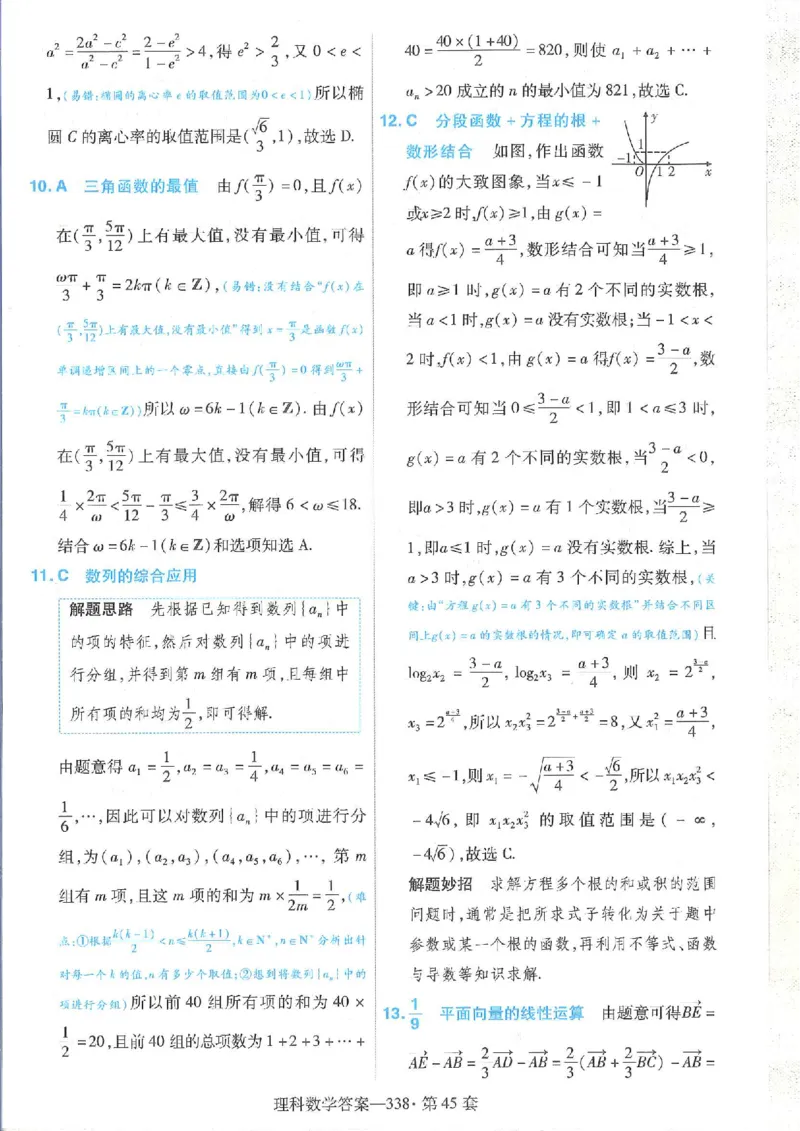 a²=\frac{2a²-c²}{a²-c²}=\frac{2-e²}{1-e²}>4,得 e²>\frac{2}{3},又 0<e<
1,(易错:椭圆的离心率 e 的取值范围为0<e<1)所以椭
圆 C 的离心率的取值范围是(\frac{√6}{3},1),故选 D.
10.A 三角函数的最值 由 f(\frac{π}{3})=0,且 f(x)
在(\frac{π}{3},\frac{5π}{12})上有最大值,没有最小值,可得
\frac{ωπ}{3}+\frac{π}{3}=2kπ(k∈Z),(易错:没有结合“f(x)在
(\frac{π}{3},\frac{5π}{12})上有最大值,没有最小值”得到 x=\frac{π}{3}是函数 f(x)
单调递增区间上的一个零点,直接由 f(\frac{π}{3})=0 得到\frac{ωπ}{3}+
\frac{π}{3}=kπ(k∈Z))所以 ω=6k-1(k∈Z). 由 f(x)
在(\frac{π}{3},\frac{5π}{12})上有最大值,没有最小值,可得
\frac{1}{4}×\frac{2π}{ω}<\frac{5π}{12}-\frac{π}{3}≤\frac{3}{4}×\frac{2π}{ω},解得 6<ω≤18.
结合 ω=6k-1(k∈Z)和选项知选 A.
11.C 数列的综合应用
解题思路 先根据已知得到数列{aₙ}中
的项的特征,然后对数列{aₙ}中的项进
行分组,并得到第 m 组有 m 项,且每组中
所有项的和均为\frac{1}{2},即可得解.
由题意得 a₁=\frac{1}{2},a₂=a₃=\frac{1}{4},a₄=a₅=a₆=
\frac{1}{6},…,因此可以对数列{aₙ}中的项进行分
组,为(a₁),(a₂,a₃),(a₄,a₅,a₆),…, 第 m
组有 m 项,且这 m 项的和为 m×\frac{1}{2m}=\frac{1}{2},(难
点:①根据\frac{k(k-1)}{2}<n≤\frac{k(k+1)}{2},k∈N*,n∈N*分析出针
对每一个 k 的值,n 有多少个取值;②想到将数列{aₙ}中的
项进行分组)所以前 40 组所有项的和为 40×
\frac{1}{2}=20,且前 40 组的总项数为 1+2+3+…+
40=\frac{40×(1+40)}{2}=820,则使 a₁+a₂+…+
aₙ>20 成立的 n 的最小值为 821,故选 C.
12.C 分段函数+方程的根+
数形结合 如图,作出函数
f(x)的大致图象,当 x≤-1
或x≥2 时,f(x)≥1,由 g(x)=
y
1
-1
O 1 2 x
a 得f(x)=\frac{a+3}{4},数形结合可知当\frac{a+3}{4}≥1,
即 a≥1 时,g(x)=a 有 2 个不同的实数根,
当 a<1 时,g(x)=a 没有实数根;当-1<x<
2 时,f(x)<1,由 g(x)=a 得f(x)=\frac{3-a}{2},数
形结合可知当 0≤\frac{3-a}{2}<1,即 1<a≤3 时,
g(x)=a 有 2 个不同的实数根,当\frac{3-a}{2}<0,
即a>3 时,g(x)=a 有 1 个实数根,当\frac{3-a}{2}≥
1,即a≤1 时,g(x)=a 没有实数根. 综上,当
a>3 时,g(x)=a 有 3 个不同的实数根,(关
键:由“方程 g(x)=a 有 3 个不同的实数根”并结合不同区
间上g(x)=a 的实数根的情况,即可确定 a 的取值范围)且
log₂x₂=\frac{3-a}{2}, log₂x₃=\frac{a+3}{4}, 则 x₂=2^{\frac{3-a}{2}},
x₃=2^{\frac{a+3}{4}},所以 x₂x₃²=2^{\frac{3-a}{2}+\frac{a+3}{2}}=8,又 x₁²=\frac{a+3}{4},
x₁≤-1,则x₁=-\sqrt{\frac{a+3}{4}}<-\frac{√6}{2},所以 x₁x₂x₃²<
-4√6, 即 x₁x₂x₃² 的取值范围是(-∞,
-4√6),故选 C.
解题妙招 求解方程多个根的和或积的范围
问题时,通常是把所求式子转化为关于题中
参数或某一个根的函数,再利用不等式、函数
与导数等知识求解.
13.\frac{1}{9} 平面向量的线性运算 由题意可得\vec{BE}=
\vec{AE}-\vec{AB}=\frac{2}{3}\vec{AD}-\vec{AB}=\frac{2}{3}(\vec{AB}+\frac{2}{3}\vec{BC})-\vec{AB}=
理科数学答案—338·第 45 套